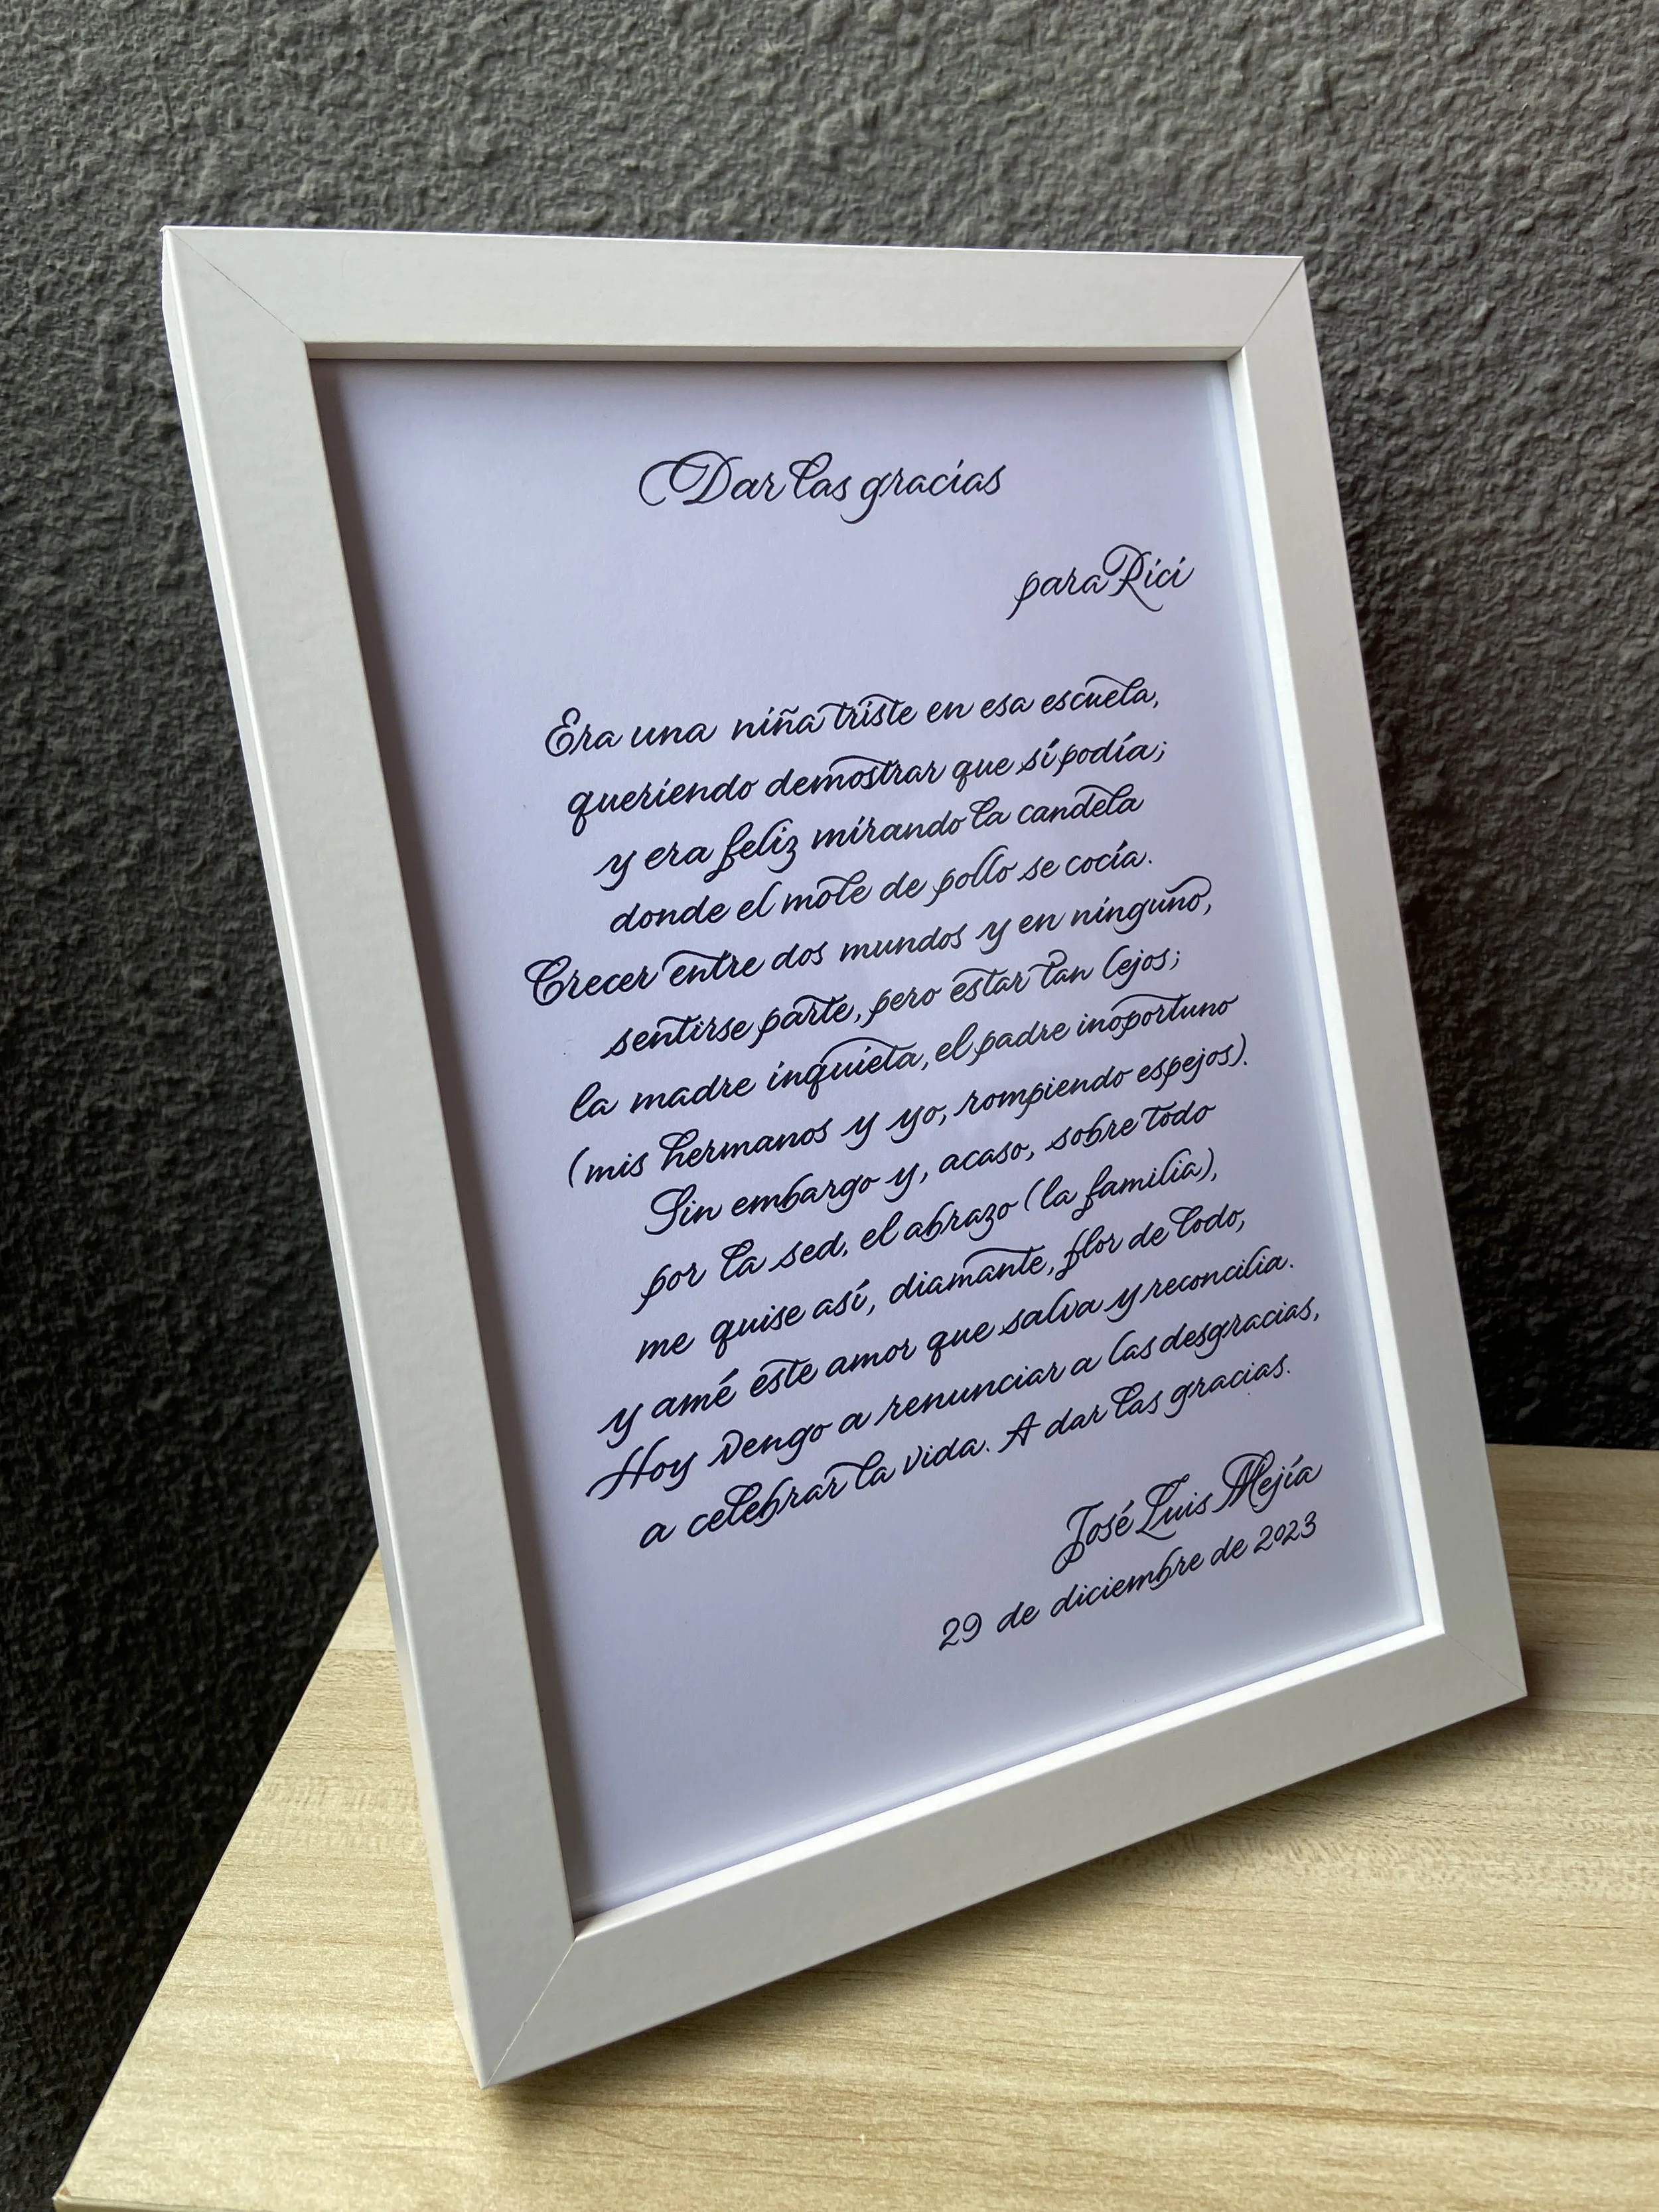 Dar las gracias
para Rici
Era una niña triste en esa escuela,
queriendo demostrar que sí podía;
y era feliz mirando la candela
donde el mole de pollo se cocía.
Crecer entre dos mundos y en ninguno,
sentirse parte, pero estar tan lejos;
la madre inquieta, el padre inoportuno
(mis hermanos y yo, rompiendo espejos).
Sin embargo y, acaso, sobre todo
por la sed, el abrazo (la familia),
me quise así, diamante, flor de lodo,
y amé este amor que salva y reconcilia.
Hoy vengo a renunciar a las desgracias,
a celebrar la vida. A dar las gracias.
José Luis Mejía
29 de diciembre de 2023